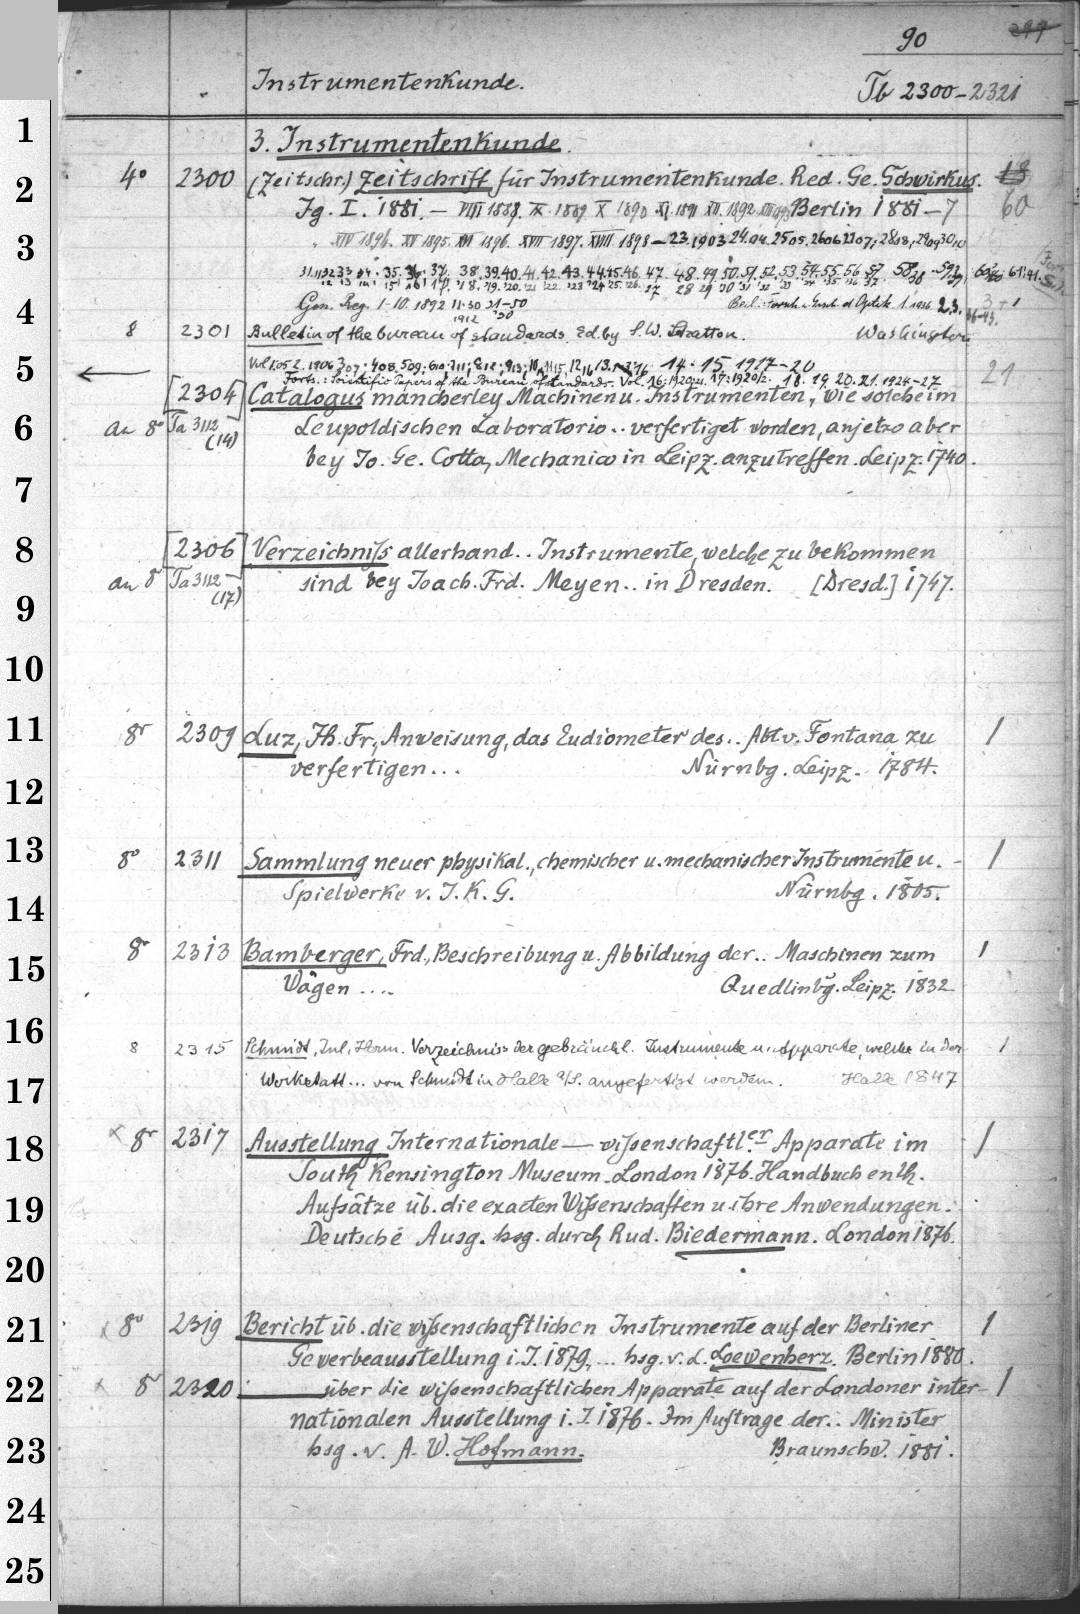 90
Instrumentenkunde. Tb 2300-2321
1
3. Instrumentenkunde.
2 4° 2300 (Zeitschr.) Zeitschrift für Instrumentenkunde. Red. Ge. Schwirkus. 60
Jg. I. 1881. — VIII 1888. IX 1889 X 1890 XI. 1891 XII. 1892 Berlin 1881-7
3 XIV 1896. XV 1895. XVI 1896. XVII 1897. XVIII 1898 - 23.1903 24.04. 2505.
38.39.40.41.42.43.44.45.46.47 48.49.50.51.52.53.54.55.56.57
4 Gen. Reg. 1-10. 1892 11-30 31-50
1912
8 2301 Bulletin of the bureau of standards. Ed. by S. W. Stratton. Washington
5 14. 15 1917-20 21
Forts.: Scientific Papers of the Bureau of Standards. Vol. 16:1920 17:1920/2. 18. 19. 20. 21. 1924-27
[2304] Catalogus mancherley Machinen u. Instrumenten, wie solche im
6 an 8° Ta 3112 (14) Leupoldischen Laboratorio .. verfertiget worden, anjetzo aber
bey Jo. Ge. Cotta, Mechanico in Leipz. anzutreffen. Leipz. 1740.
7
8 [2306] Verzeichniſs allerhand .. Instrumente, welche zu bekommen
an 8 Ta 3112 (17) sind bey Joach. Frd. Meyen .. in Dresden. [Dresd.] 1747.
9
10
11 8° 2309 Luz, Jh. Fr., Anweisung, das Eudiometer des .. Abt v. Fontana zu 1
verfertigen ... Nürnbg. Leipz. 1784.
12
13 8° 2311 Sammlung neuer physikal., chemischer u. mechanischer Instrumente u. - 1
14 Spielwerke v. J. K. G. Nürnbg. 1805.
15 8° 2313 Bamberger, Frd., Beschreibung u. Abbildung der .. Maschinen zum 1
Wägen .... Quedlinbg. Leipz. 1832
16 8 2315 Schmidt, Jul. Herm. Verzeichniss der gebräuchl. Instrumente u. Apparate, welche in der 1
17 Werkstatt ... von Schmidt in Halle a/S. angefertigt werden. Halle 1847
18 x 8° 2317 Ausstellung, Internationale — wiſsenschaftl.er Apparate im 1
South Kensington Museum. London 1876. Handbuch enth.
19 Aufsätze üb. die exacten Wiſsenschaften u. ihre Anwendungen.
Deutsche Ausg. hsg. durch Rud. Biedermann. London 1876.
20
21 x 8° 2319 Bericht üb. die wiſsenschaftlichen Instrumente auf der Berliner 1
Gewerbeausstellung i. J. 1879, ... hsg. v. L. Loewenherz. Berlin 1880.
22 x 8° 2320 — über die wiſsenschaftlichen Apparate auf der Londoner inter- 1
nationalen Ausstellung i. J. 1876. Im Auftrage der .. Minister
23 hsg. v. A. W. Hofmann. Braunschw. 1881.
24
25